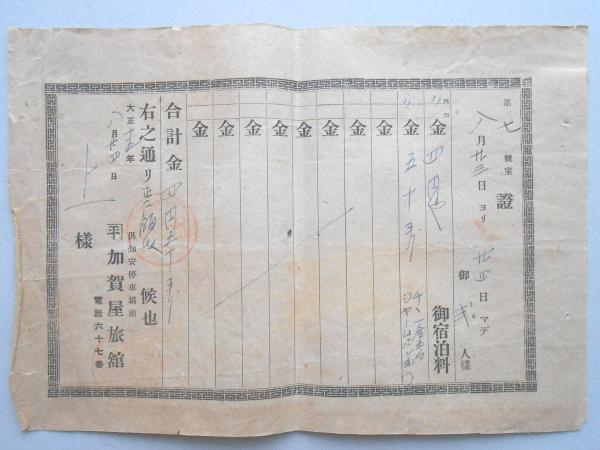 第七號室
證
八月廿三日ヨリ
廿四日マデ
御弍人樣
金四円也
御宿泊料
金五十銭
金
金
金
金
金
金
金
合計金四円五十銭
右之通リ正ニ領收候也
大正十五年
八月廿四日
樣
倶知安停車塲前
平加賀屋旅舘
電話六十七番